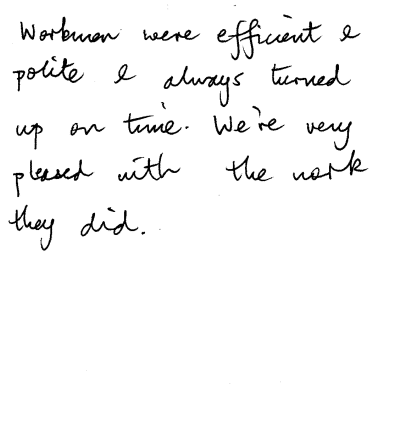 Workmen were efficient &
polite & always turned
up on time. We're very
pleased with the work
they did.